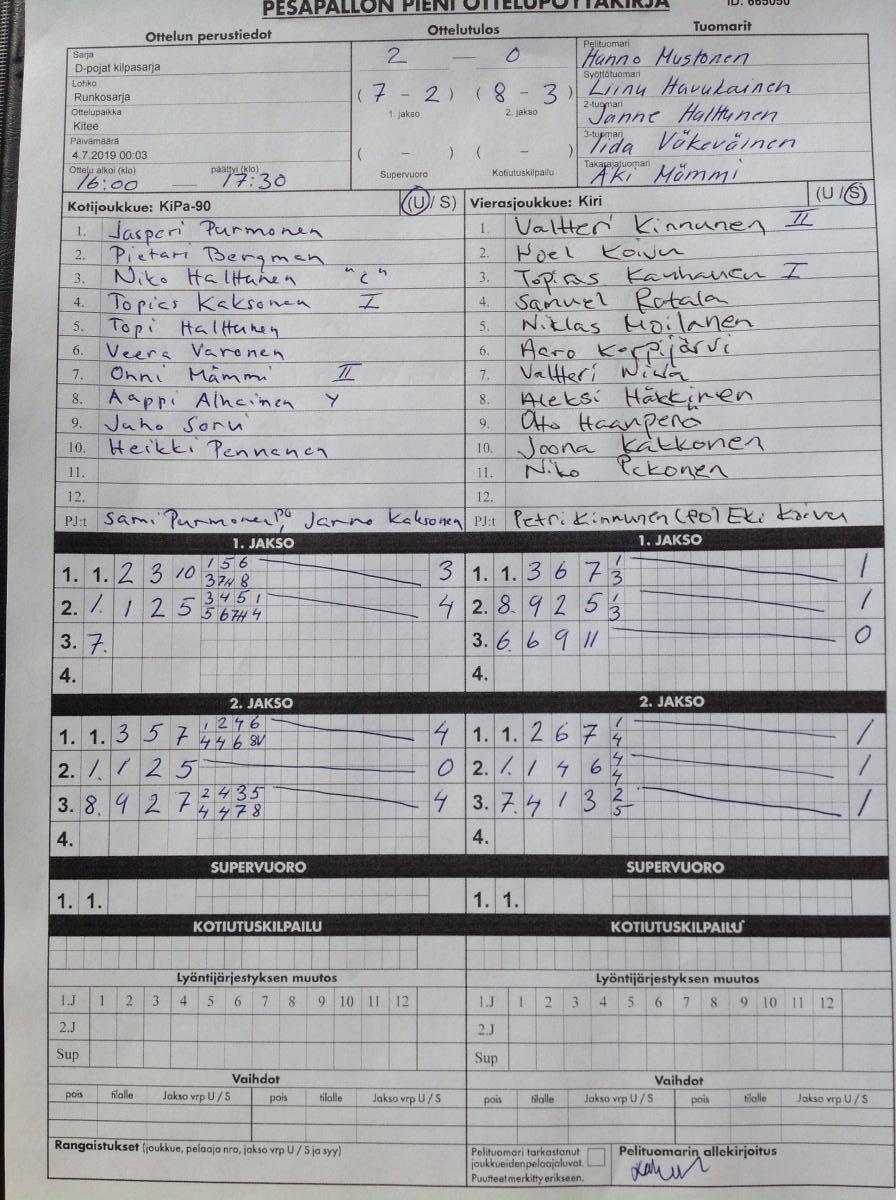 PESÄPALLON PIENI OTTELUPÖYTÄKIRJA
ID: 665050
Ottelun perustiedot
Sarja
D-pojat kilpasarja
Lohko
Runkosarja
Ottelupaikka
Kitee
Päivämäärä
4.7.2019 00:03
Ottelu alkoi (klo) päättyi (klo)
16:00 — 17:30
Ottelutulos
2 — 0
(7 - 2) (8 - 3)
1. jakso 2. jakso
( - ) ( - )
Supervuoro Kotiutuskilpailu
Tuomarit
Pelituomari
Hanno Mustonen
Syöttötuomari
Liinu Havukainen
2-tuomari
Janne Halttunen
3-tuomari
Iida Väkeväinen
Takarajatuomari
Aki Mämmi
Kotijoukkue: KiPa-90 (U / S)
1. Jasperi Purmonen
2. Pietari Bergman
3. Niko Halttunen "C"
4. Topias Kaksonen I
5. Topi Halttunen
6. Veera Varonen
7. Onni Mämmi II
8. Aappi Alhainen Y
9. Juho Sorvi
10. Heikki Pennanen
11.
12.
PJ:t Sami Purmonen PG, Janno Kaksonen
Vierasjoukkue: Kiri (U / S)
1. Valtteri Kinnunen II
2. Noel Koivu
3. Topias Kauhanen I
4. Samuel Rotala
5. Niklas Moilanen
6. Aaro Korpijärvi
7. Valtteri Niva
8. Aleksi Häkkinen
9. Otto Haanperä
10. Joona Kakkonen
11. Niko Pekonen
12.
PJ:t Petri Kinnunen (PO) Eki Koivu
1. JAKSO
1. 1. 2 3 10 1 5 6 3
3 7H 8
2. 1. 1 2 5 3 4 5 1 4
5 6 7H 4
3. 7.
4.
1. JAKSO
1. 1. 3 6 7 1 1
3
2. 8. 9 2 5 1 1
3
3. 6. 6 9 11 0
4.
2. JAKSO
1. 1. 3 5 7 1 2 4 6 4
4 4 6 8V
2. 1. 1 2 5 0
3. 8. 9 2 7 2 4 3 5 4
4 4 7 8
4.
2. JAKSO
1. 1. 2 6 7 1 1
4
2. 1. 1 4 6 4 1
4
3. 7. 4 1 3 2 1
5
4.
SUPERVUORO
1. 1.
SUPERVUORO
1. 1.
KOTIUTUSKILPAILU
KOTIUTUSKILPAILU
Lyöntijärjestyksen muutos
1.J 1 2 3 4 5 6 7 8 9 10 11 12
2.J
Sup
Lyöntijärjestyksen muutos
1.J 1 2 3 4 5 6 7 8 9 10 11 12
2.J
Sup
Vaihdot
pois tilalle Jakso vrp U / S pois tilalle Jakso vrp U / S
Vaihdot
pois tilalle Jakso vrp U / S pois tilalle Jakso vrp U / S
Rangaistukset (joukkue, pelaaja nro, jakso vrp U / S ja syy)
Pelituomari tarkastanut
joukkueiden pelaajaluvat.
Puutteet merkitty erikseen.
Pelituomarin allekirjoitus